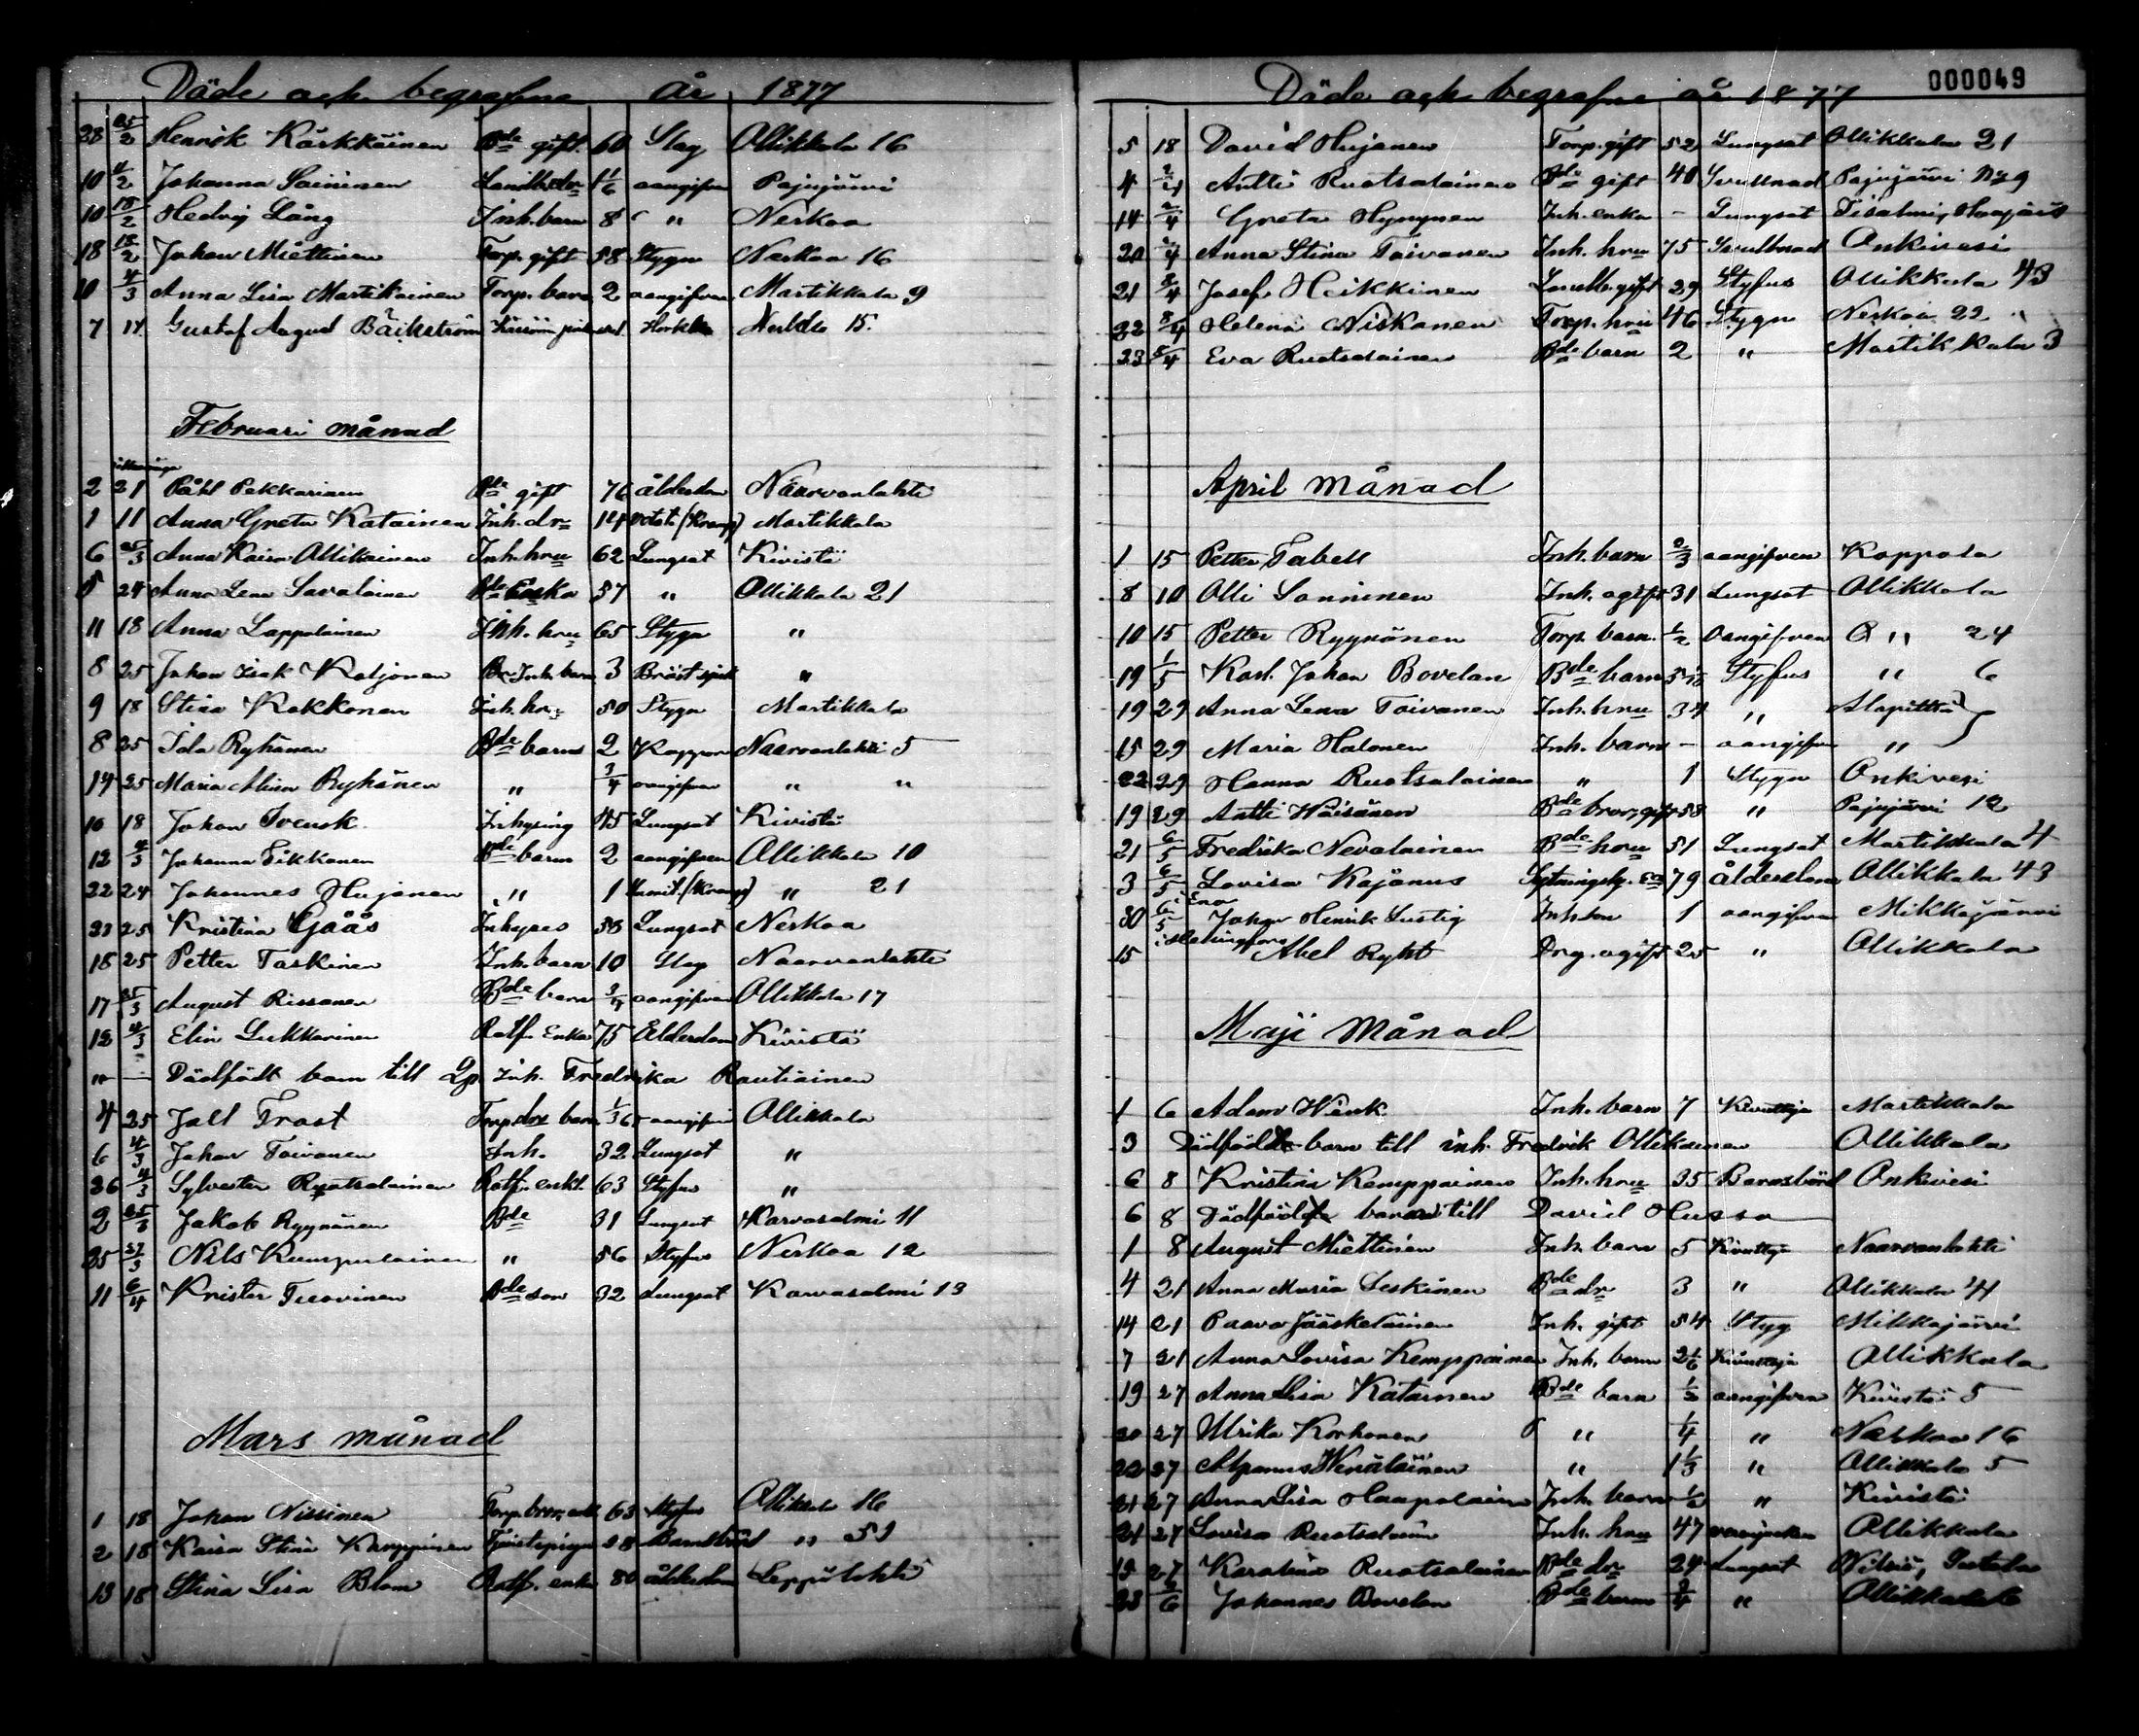 Döde och begrafne år 1877
28 25/2 Henrik Kärkkäinen Bde gift. 60 Slag Ollikkala 16
10 11/2 Johanna Saininen 1 1/6 aangifven Pajujärvi
10 18/2 Hedvig Lång Inh. barn 8 " Nerkoo
18 18/2 Johan Miettinen Torp. gift 58 Stygn Nerkoo 16
10 4/3 Anna Lisa Martikainen Torp. barn 2 aangifven Martikkala 9
7 14 Gustaf August Bäckström 15.
Februari månad
2 21 Påhl Pekkarinen Bde gift 76 ålderdom Naarvanlahti
1 11 Anna Greta Katainen Inh. dr 14 (Kramp) Martikkala
6 25/3 Anna Kaisa Ollikainen Inh. hru 62 Lungsot Kivistö
5 24 Anna Lena Savolainen Bde Enka 57 " Ollikkala 21
11 18 Anna Lappalainen Inh. hru 65 Stygn "
8 25 Johan Isak Katjonen Inh. barn 3 Bröst sjuk "
9 18 Stina Kokkonen Inh. hru 50 Stygn Martikkala
8 25 Ida Ryhänen Bde barn 2 Koppor Naarvanlahti 5
14 25 Maria Alina Ryhänen " 3/4 aangifven " "
16 18 Johan Svensk Inhysing 45 Lungsot Kivistö
12 4/3 Johanna Tikkanen Bde barn 2 aangifven Ollikkala 10
22 24 Johannes Hujanen " 1 (Kramp) " 21
23 25 Kristina Gåås Inhyses 58 Lungsot Nerkoo
18 25 Petter Taskinen Inh. barn 10 Slag Naarvanlahti
17 25/3 August Rissanen Bde barn aangifven Ollikkala 17
12 4/3 Elin Lukkarinen Rotf. Enka 75 Ålderdom Kivistö
" — Dödfödt barn till Lp Inh. Fredrika Rautiainen
4 25 Joll Frost barn aangifven Ollikkala
6 4/3 Johan Toivanen Inh. 32 Lungsot "
26 4/3 Sylvester Ruotsalainen Rotf. enkl. 63 Styfus "
2 25/3 Jakob Ryynänen Bde 31 Lungsot Karvasalmi 11
25 Nils Kumpulainen " 56 Styfus Nerkoo 12
11 6/4 Krister Tuovinen Bde son 32 Lungsot Karvasalmi 13
Mars månad
1 18 Johan Nissinen 63 Styfus Ollikkala 16
2 18 Kaisa Stina Kamppinen 28 Barnsbörd " 51
13 18 Stina Lisa Blom Rotf. enka 80 ålderdom Leppälahti
Döde och begrafne år 1877 000049
5 18 David Hujanen Torp. gift 52 Lungsot Ollikkala 21
4 2/4 Antti Ruotsalainen Bde gift 40 Svullnad Pajujärvi No 9
14 2/4 Greta Hynynen Inh. enka — Lungsot Iisalmi,
20 2/4 Anna Stina Toivanen Inh. hru 75 Svullnad Onkivesi
21 Josef Heikkinen gift 29 Styfus Ollikkala 43
22 8/4 Helena Niskanen Torp. hru 46 Stygn Nerkoo 22
23 5/4 Eva Ruotsalainen Bde barn 2 " Martikkala 3
April månad
1 15 Petter Tabell Inh. barn 2/3 aangifven Koppola
8 10 Olli Sonninen Inh. ogift 31 Lungsot Ollikkala
10 15 Petter Ryynänen Torp. barn. 1/2 aangifven O " 24
19 1/5 Karl Johan Bovelan Bde barn Styfus " 6
19 29 Anna Lena Toivanen Inh. hru 34 " Alapitkä
15 29 Maria Halonen Inh. barn — aangifven "
22 29 Hanna Ruotsalainen " 1 Stygn Onkivesi
19 29 Antti Väisänen Bde bror, gift 58 " Pajujärvi 12
21 6/5 Fredrika Nevalainen Bde hru 51 Lungsot Martikkala 4
3 6/5 Lovisa Kajanus 79 ålderdom Ollikkala 43
i Eno
30 6/5 Johan Henrik Lustig Inh. son 1 aangifven Mikkajärvi
i Helsingfors
15 Abel Ryht Drg. ogift 25 " Ollikkala
Maji månad
1 6 Adam Wink Inh. barn 7 Martikkala
3 Dödfödt barn till inh. Fredrik Ollikainen Ollikkala
6 8 Kristina Kemppainen Inh. hru 35 Barnsbörd Onkivesi
6 8 Dödfödt barn till David Husso
1 8 August Miettinen Inh. barn 5 Naarvanlahti
4 21 Anna Maria Leskinen Bde dr 3 " Ollikkala 44
14 21 Paavo Jääskeläinen Inh. gift 54 Styg Mikkajärvi
7 21 Anna Lovisa Kemppainen Inh. barn 2 1/6 Ollikkala
19 27 Anna Lisa Katainen Bde barn 1/2 aangifven Kivistö 5
20 27 Ulrika Korhonen " 1/4 " Nerkoo 16
22 27 Venäläinen " 1 1/3 " Ollikkala 5
21 27 Anna Lisa Haapalainen Inh. barn 1/2 " Kivistö
21 27 Lovisa Ruotsalainen Inh. hru 47 Ollikkala
19 27 Karolina Ruotsalainen Bde dr 24 Lungsot Nilsiä,
23 Johannes Bovelan Bde barn 3/4 " Ollikkala 6